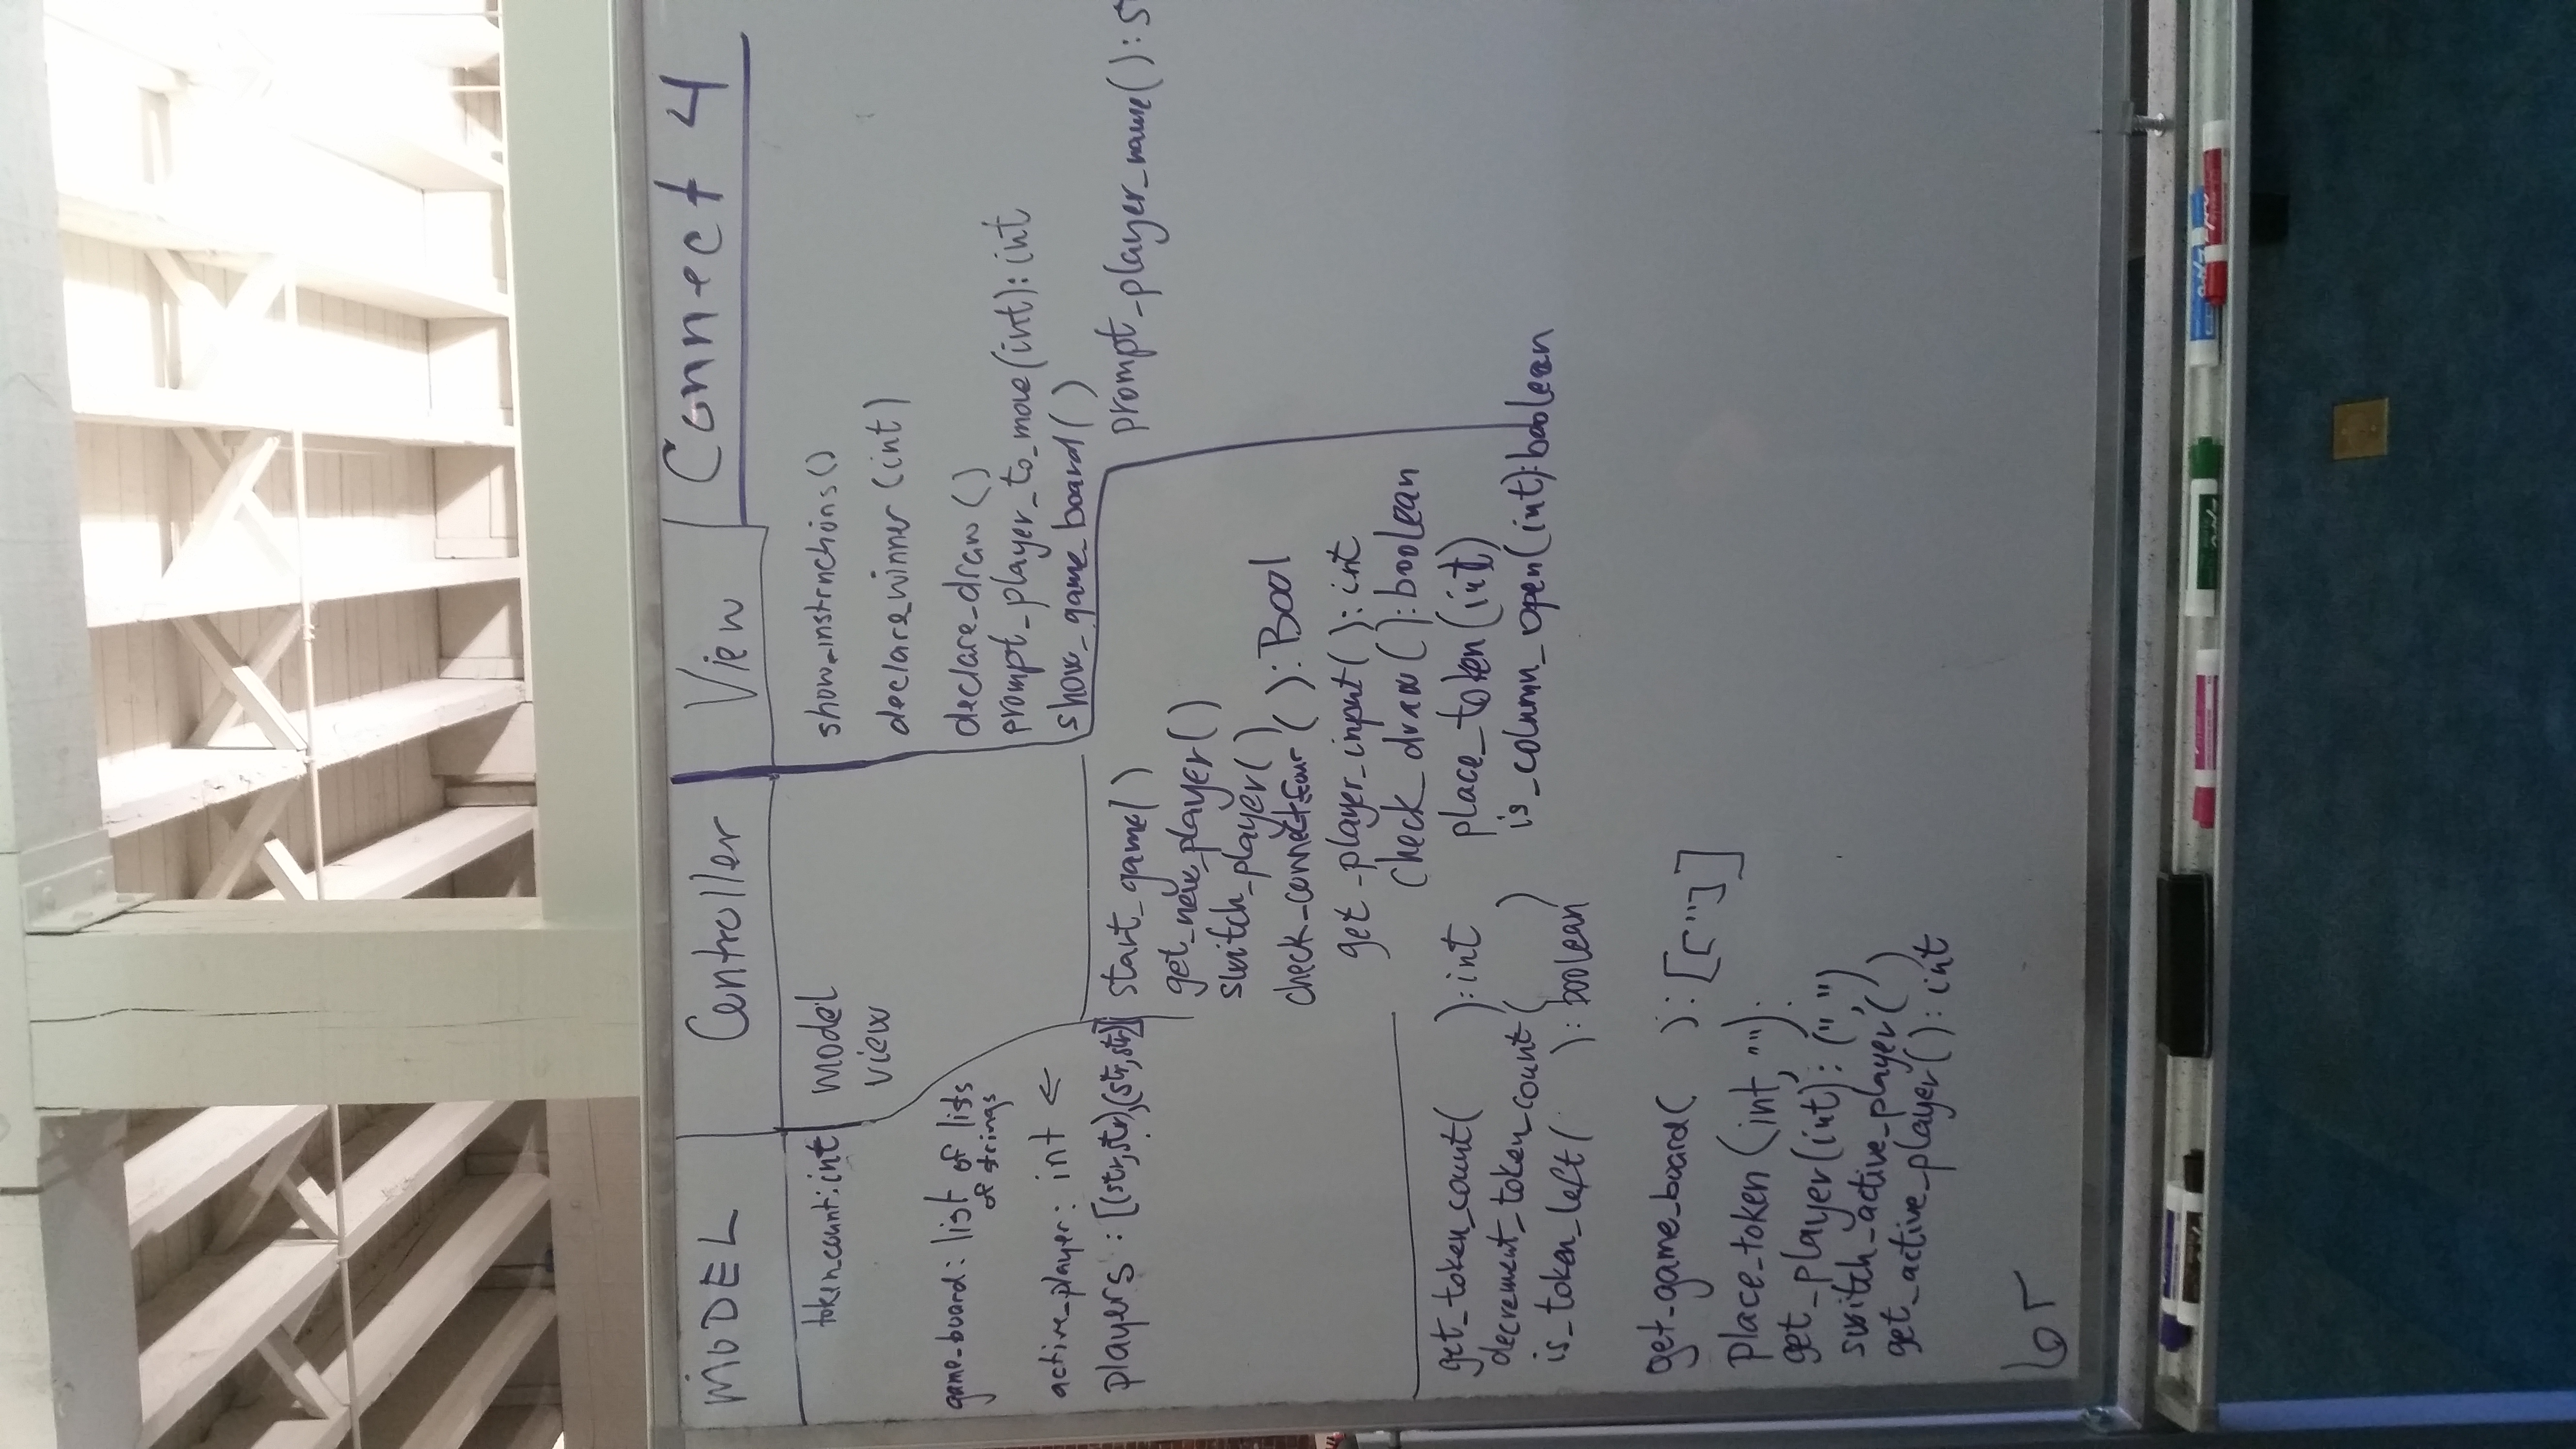 MODEL
Controller
View
Connect 4
token_count: int
game_board: list of lists
of strings
active_player: int ←
players : [(str,str),(str,str)]
get_token_count( ):int
decrement_token_count( )
is_token_left( ): boolean
get_game_board( ): [["]]
place_token (int, ""):
get_player(int): (",")
switch_active_player( )
get_active_player(): int
model
view
start_game()
get_new_player()
switch_player()
check_connect_four ( ): Bool
get_player_input( ): int
check_draw(): boolean
place_token(int)
is_column_open(int):boolean
show_instructions()
declare_winner (int)
declare_draw ()
prompt_player_to_move(int): int
show_game_board()
prompt_player_name(): s